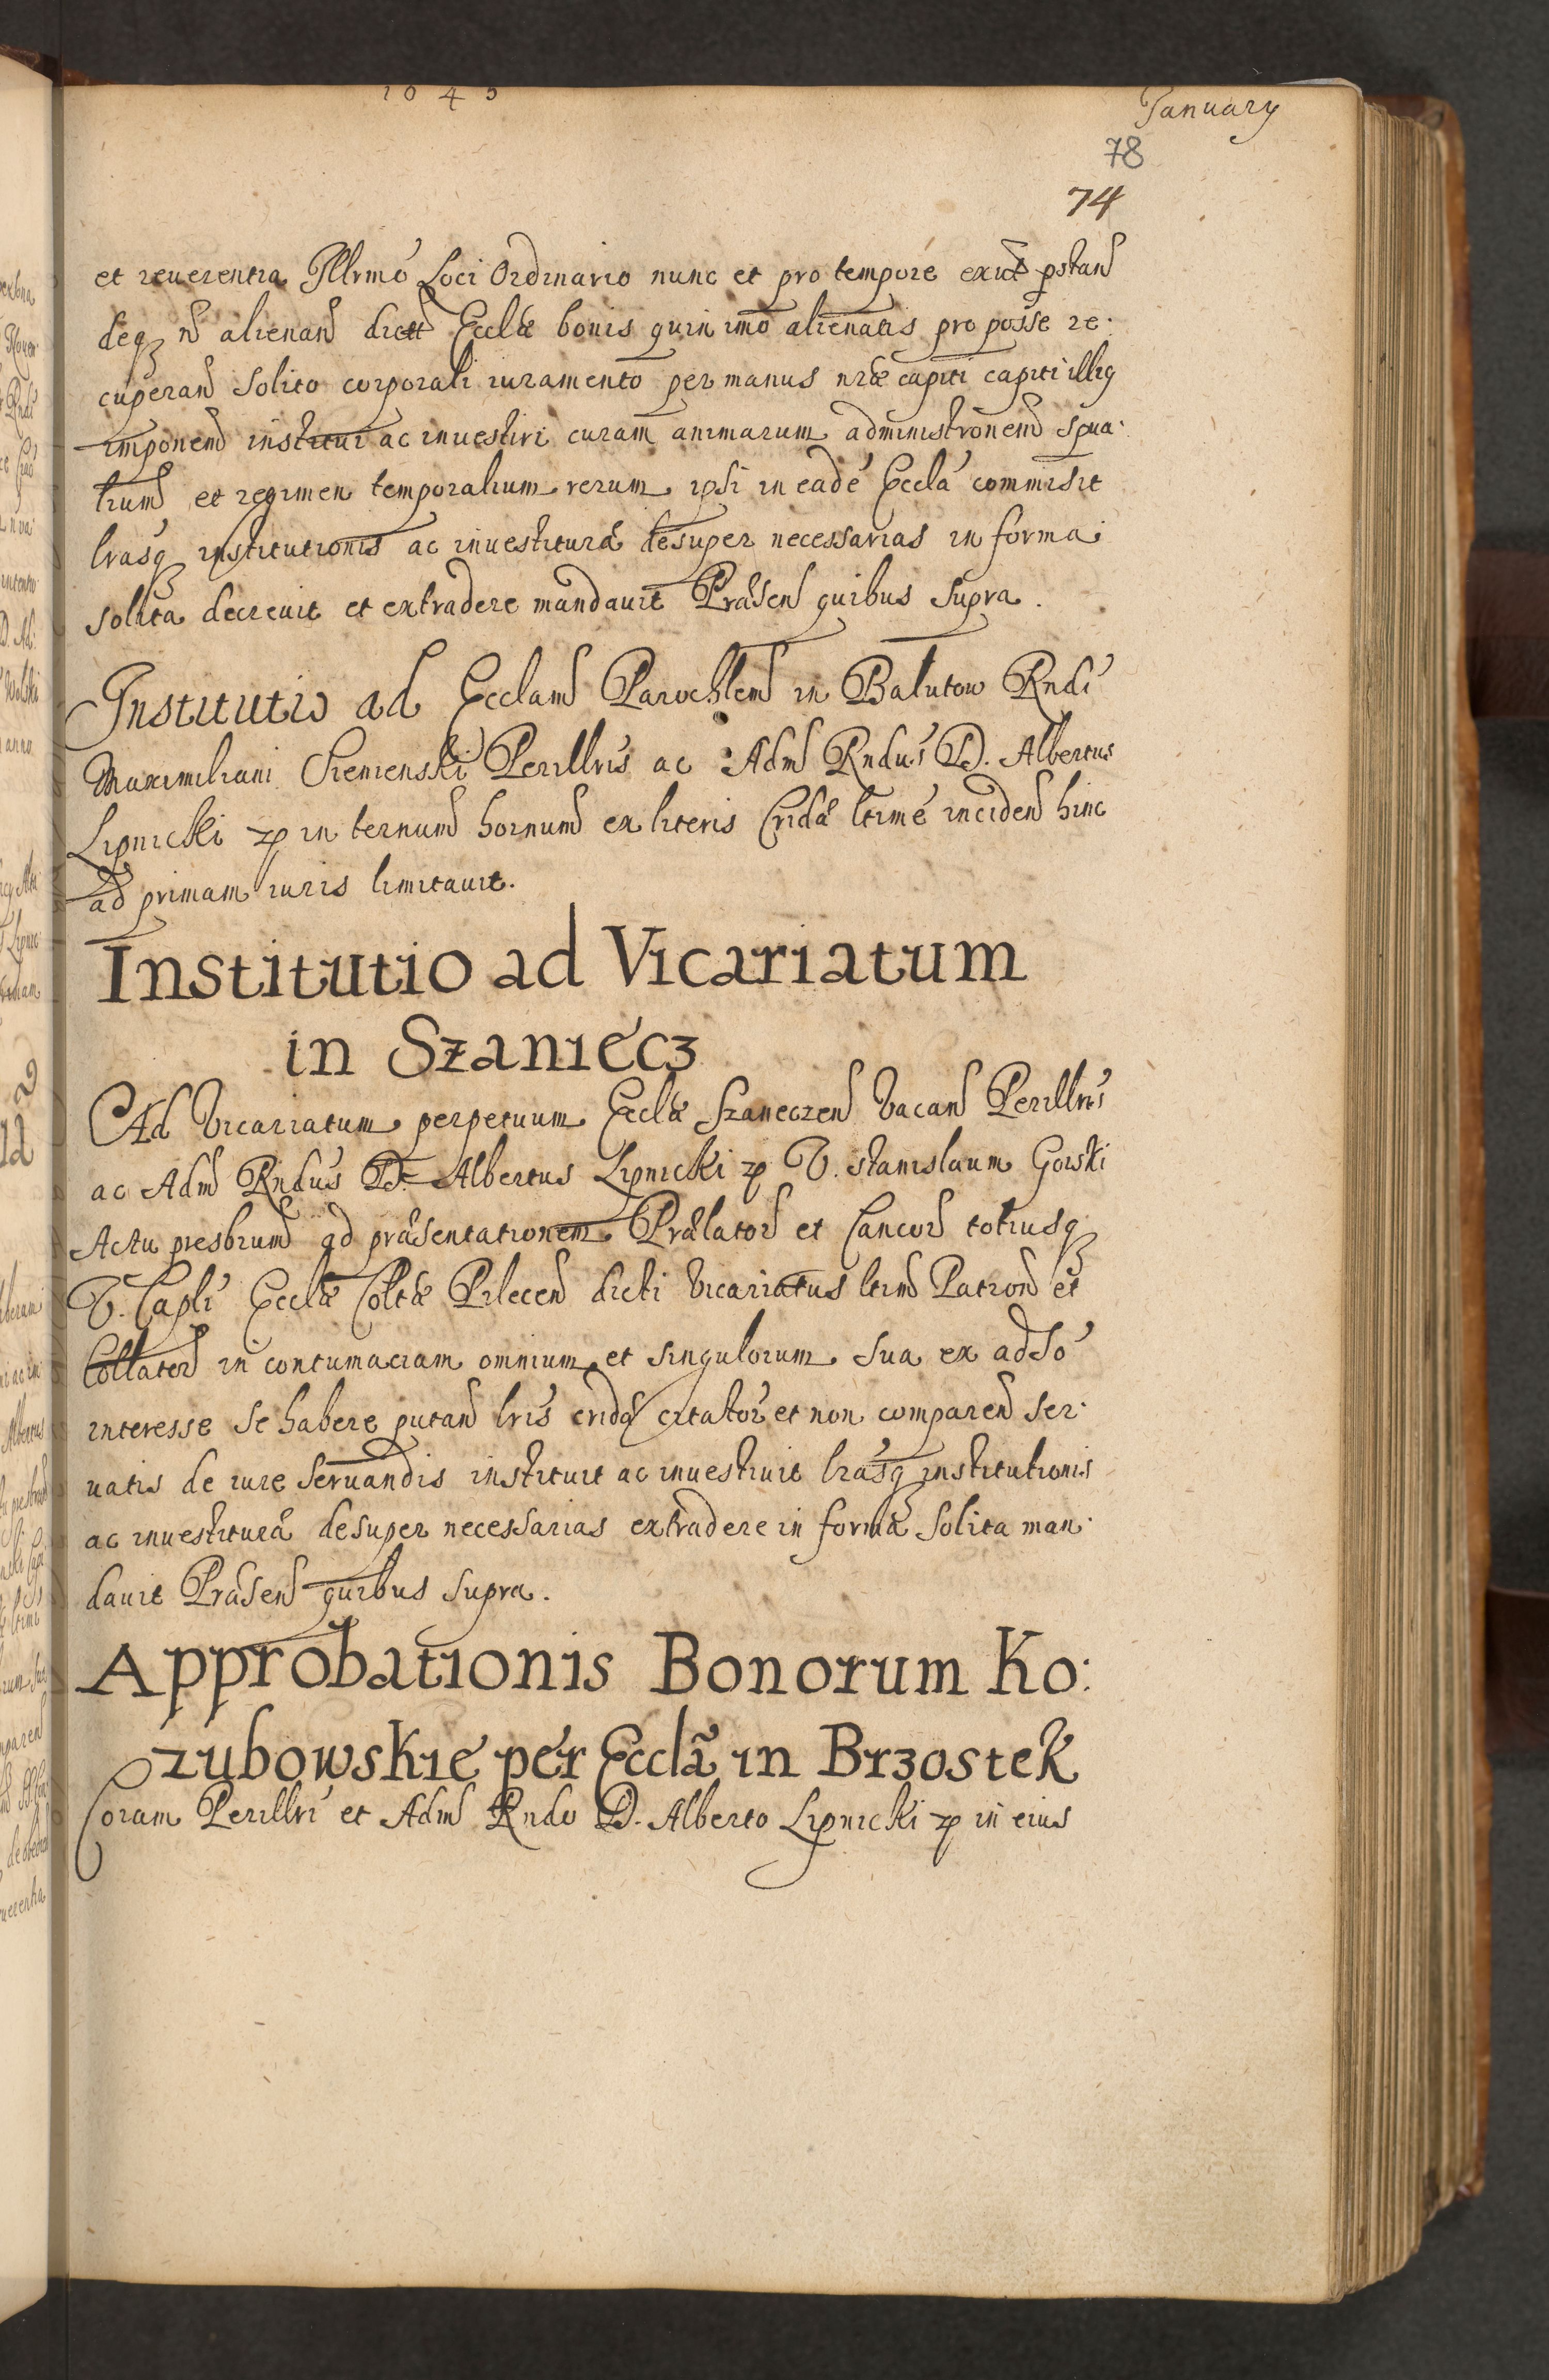 1645
January
78
74
et reuerentia Illrmo Loci Ordinario nunc et pro tempore exnt pstan
deq n alienan dictt Eccla bonis quin imo alienatis pro posse re
cuperan solito corporali iuramento per manus nrae capiti capiti illiq
imponend institui ac inuestiri curam animarum administronem spua
lium et regimen temporalium rerum ipsi in eade Eccla commisit
lrasq institutionis ac inuestitura desuper necessarias in forma
solita decreuit et extradere mandauit Praesen quibus supra.
Institutio ad Ecclam Parochlem in Balutow Rndi
Maximiliani Siemienski Perillris ac Adm Rndus D. Albertus
Lipnicki zp in ternum hornum ex literis Crida ltime inciden hinc
ad primam iuris limitauit.
Institutio ad Vicariatum
in Szaniecz
Ad Vicariatum perpetuum Eccla Szaneczen Vacan Perillris
ac Adm Rndus D. Albertus Lipnicki zp V. stanislaum Gorski
Actu presbrum ad praesentationem Praelator et Cancor totiusq
V. Capli Eccla Colta Pilecen dicti Vicariatus ltim Patron et
Collator in contumaciam omnium et singulorum sua ex adso
interesse se habere putan lris crida citator et non comparen ser
uatis de iure seruandis instituit ac inuestiuit lrasq institutionis
ac inuestitura desuper necessarias extradere in forma solita man
dauit Praesen quibus supra.
Approbationis Bonorum Ko:
zubowskie per Eccla in Brzostek
Coram Perillri et Adm Rndo D. Alberto Lipnicki zp in eius